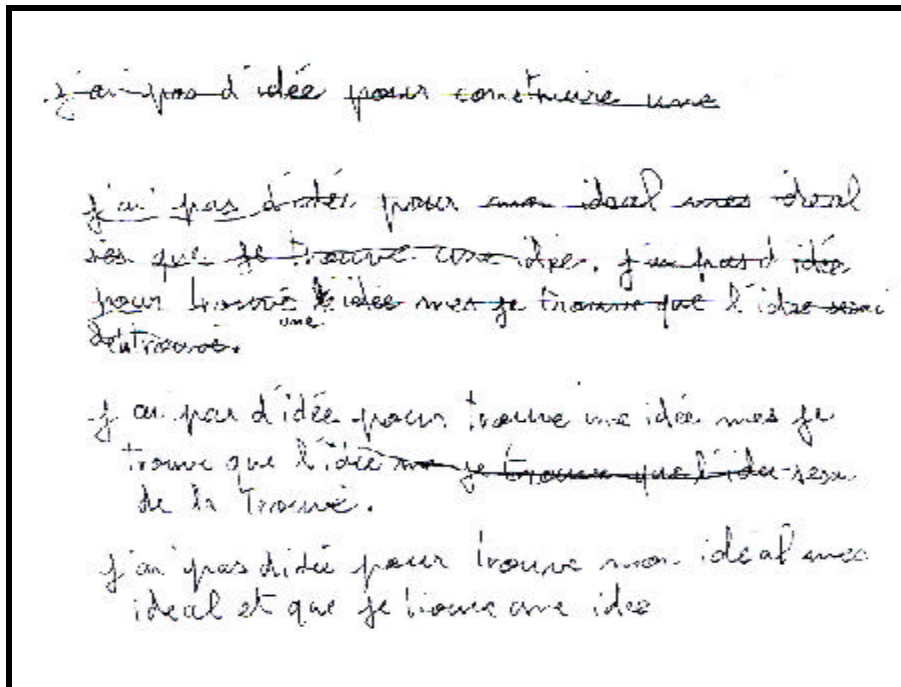 j'ai pas d'idée pour construire une
j'ai pas d'idée pour mon ideal mes ideal
que je trouve une idee. j'ai pas d idée
pour trouvé une idée mes je trouve que l'idée serai
de la trouvé.
j'ai pas d'idée pour trouvé une idée mes je
trouve que l'idée je trouve que l'idée sera
de la trouvé.
j'ai pas d'idée pour trouve mon idéal mes
ideal et que je trouve une idee